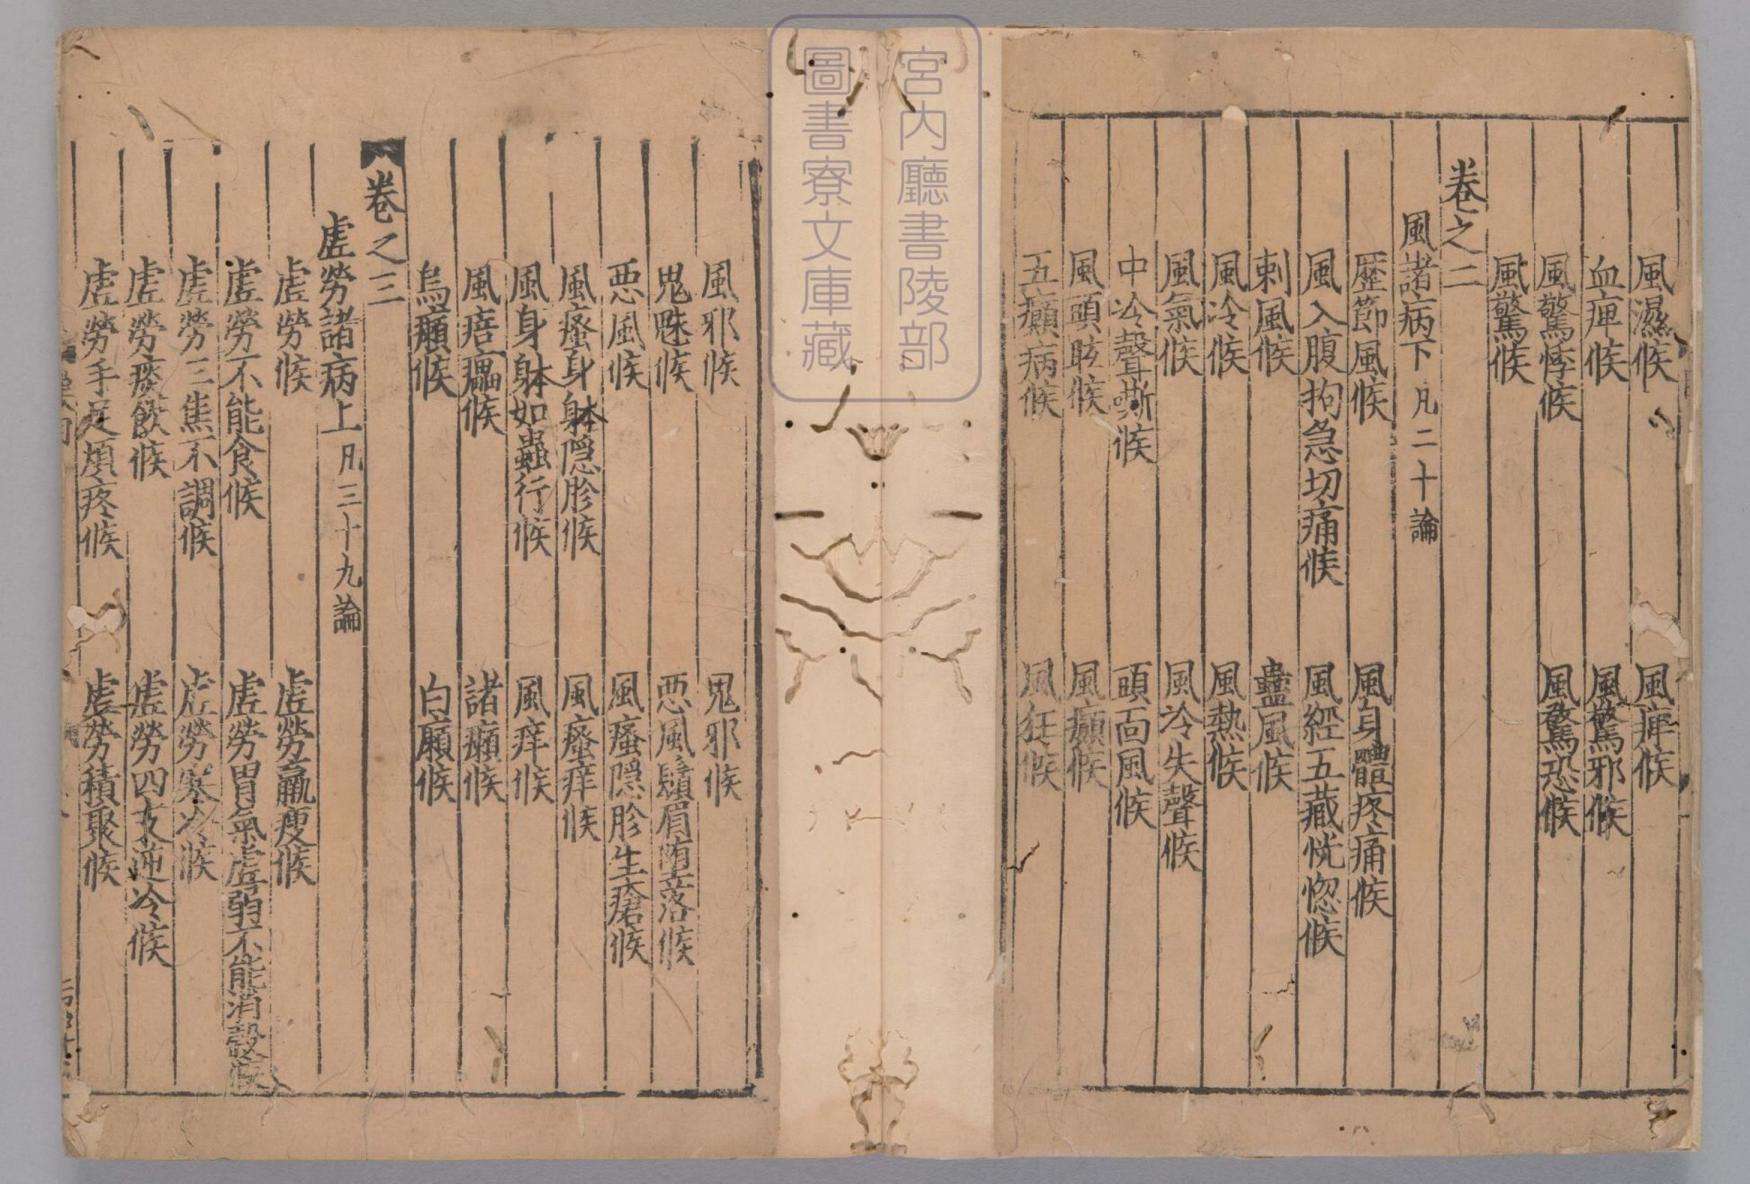 風濕候　風痺候
血痺候　風驚邪候
風驚悸候　風驚恐候
風驚候
卷之二
風諸病下凡二十論
歷節風候　風身體疼痛候
風入腹拘急切痛候　風經五藏恍惚候
刺風候　蠱風候
風冷候　風熱候
風氣候　風冷失聲候
中冷聲嘶候　頭面風候
風頭眩候　風癲候
五癲病候　風狂候
宮内廳書陵部
圖書寮文庫藏
風邪候　鬼邪候
鬼魅候　惡風鬚眉墮落候
惡風候　風瘙隱胗生瘡候
風瘙身躰隱胗候　風瘙痒候
風身躰如蟲行候　風痒候
風痦㿔候　諸癩候
烏癩候　白癩候
卷之三
虛勞諸病上凡三十九論
虛勞候　虛勞羸瘦候
虛勞不能食候　虛勞胃氣虛弱不能消穀候
虛勞三焦不調候　虛勞寒冷候
虛勞痰飲候　虛勞四支逆冷候
虛勞手足煩疼候　虛勞積聚候